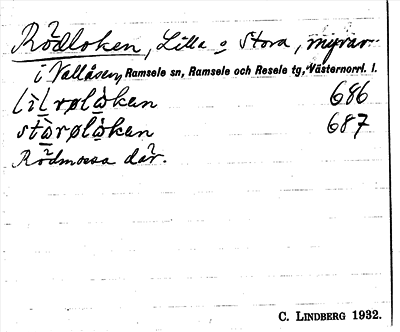 Rödloken, Lilla o Stora, myrar
i Vallåsen, Ramsele sn, Ramsele och Resele tg, Västernorrl. l.
lìlrøl̀òkan 686
stòrøl̀òkan 687
Rödmossa där.
C. LINDBERG 1932.